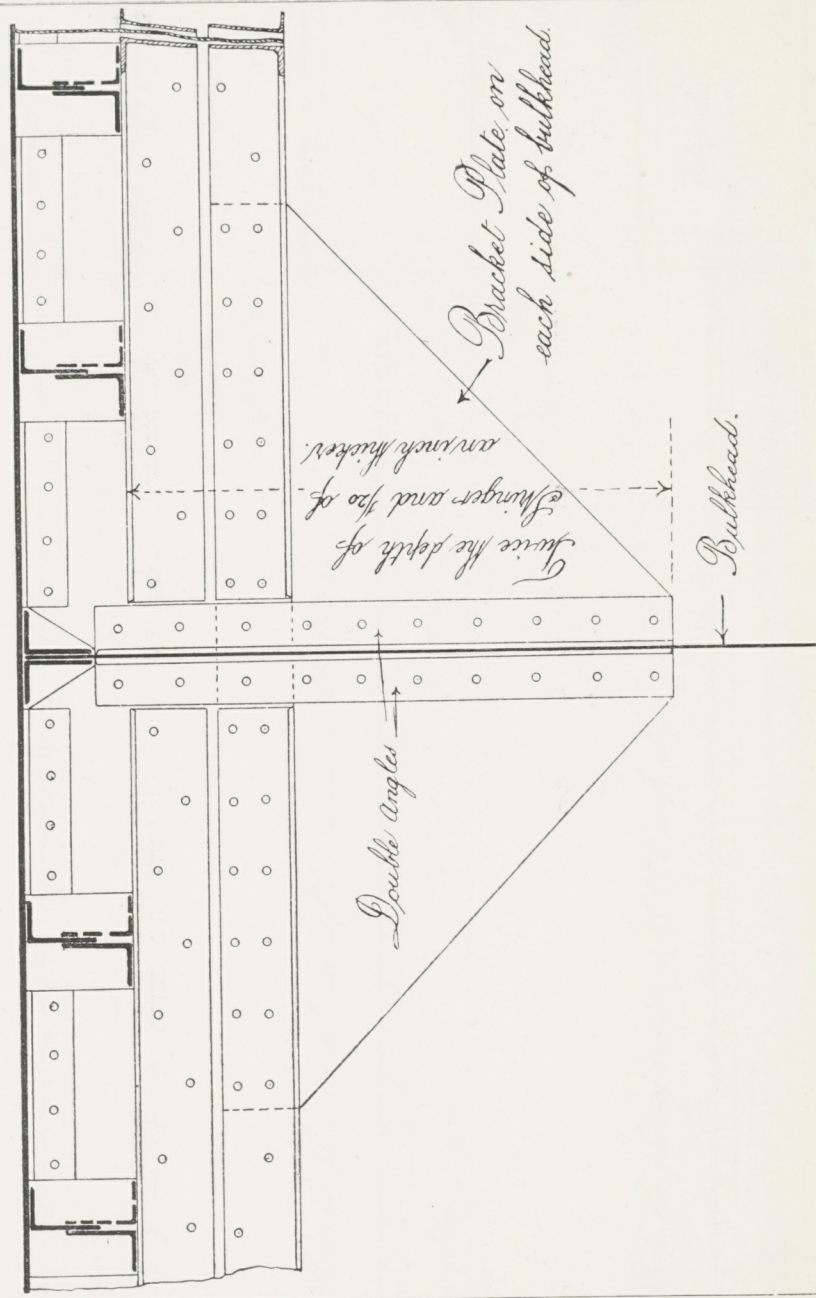 Bracket Plate on
each side of bulkhead.
Twice the depth of
Stringer and 1/20 of
an inch thicker.
Double angles
Bulkhead.